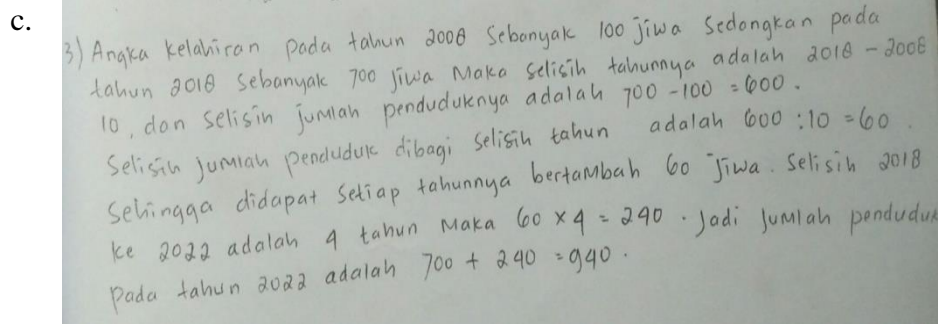 c.
3) Angka kelahiran pada tahun 2008 Sebanyak 100 jiwa Sedangkan pada
tahun 2018 Sebanyak 700 jiwa Maka Selisih tahunnya adalah 2018 - 2008
10, dan Selisih jumlah penduduknya adalah 700 - 100 = 600.
Selisih jumlah penduduk dibagi selisih tahun adalah 600 : 10 = 60.
Sehingga didapat Setiap tahunnya bertambah 60 jiwa. Selisih 2018
ke 2022 adalah 4 tahun Maka 60 x 4 = 240. Jadi Jumlah penduduk
pada tahun 2022 adalah 700 + 240 = 940.